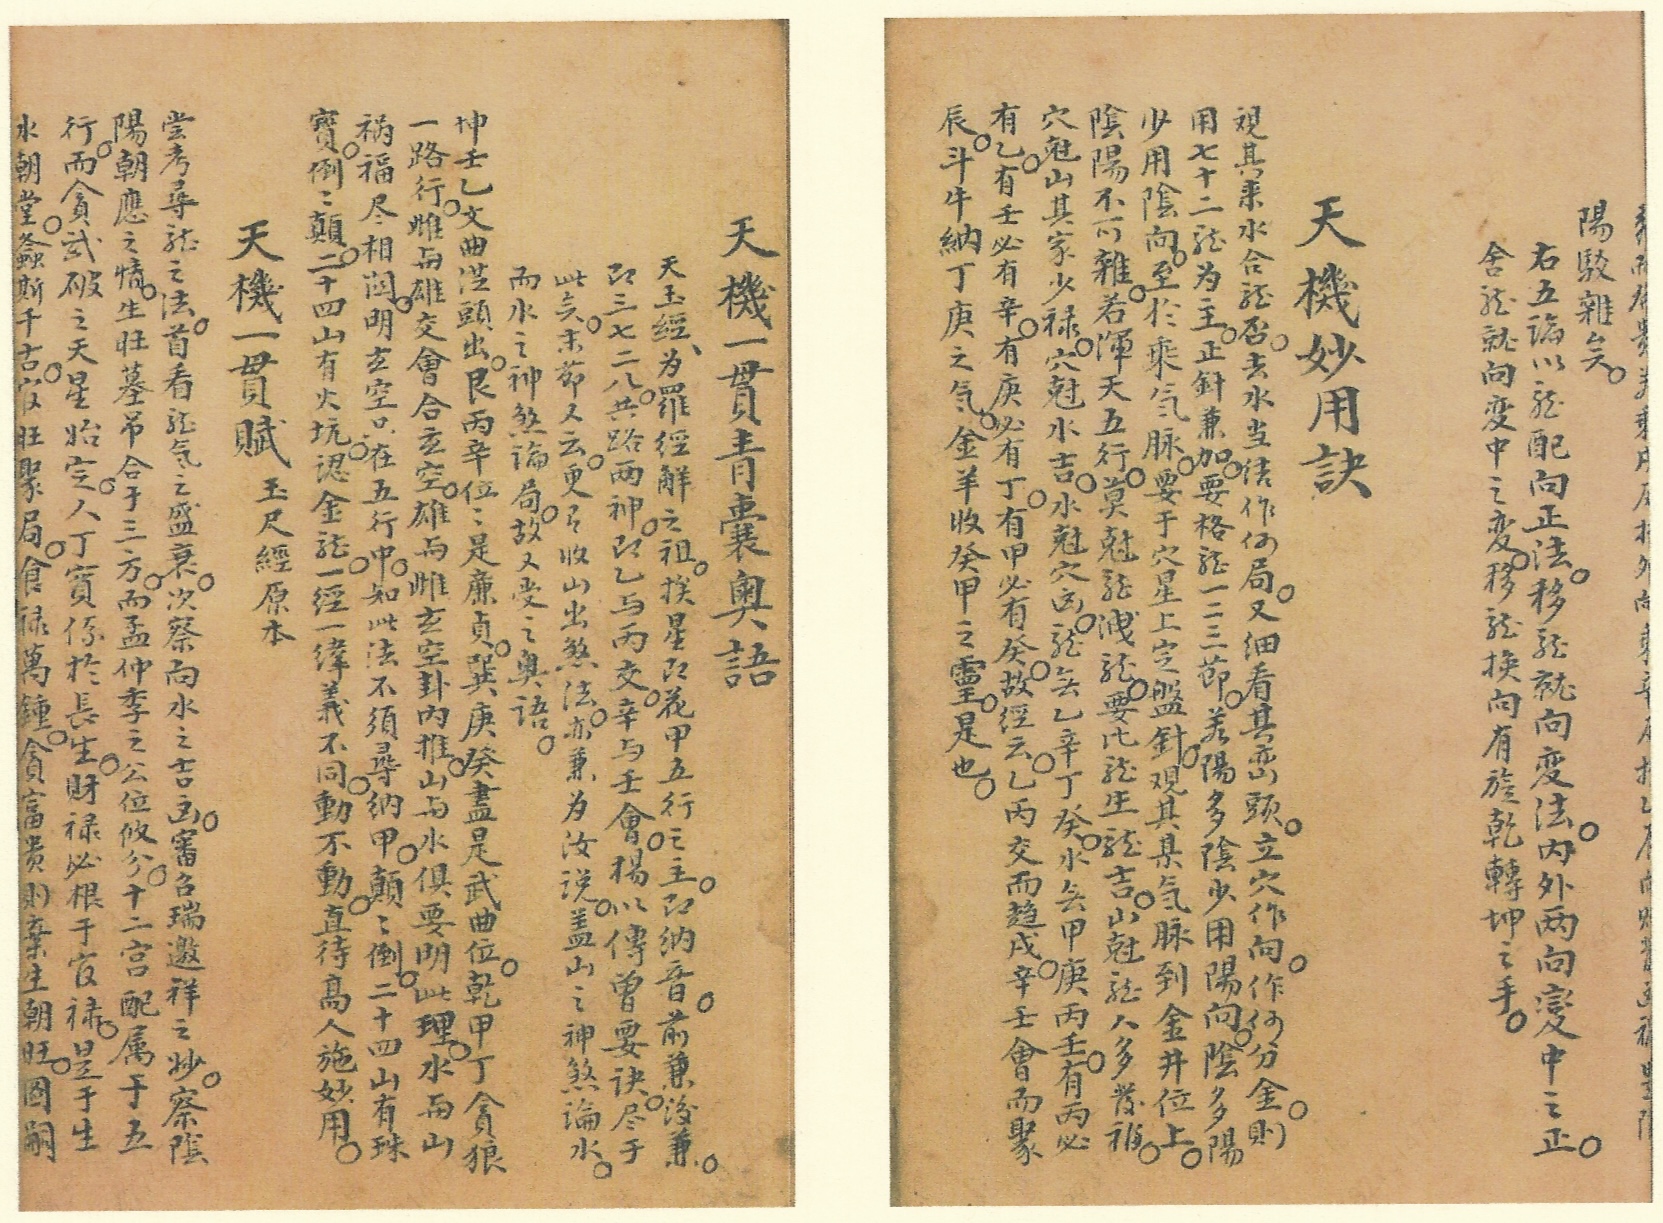 陽駁雜矣。
右五論以龍配向正法。移龍就向变法。內外两向變中之正。
舍龍就向变中之变。移龍换向有旋乾轉坤之手。
天機妙用訣
視其來水合龍否。去水当結作何局。又細看其峦頭。立穴作向。作何分金。則
用七十二龍为主。正針兼加。要格龍一二三節。若陽多陰少用陽向。陰多陽
少用陰向。至於乘气脉。要于穴星上定盤針。观其某气脉到金井位上。
陰陽不可雜。若渾天五行。莫尅龍洩龍。要比龍生龍吉。山尅龍人多發禍。
穴尅山其家少禄。穴尅水吉。水尅穴凶。龍無乙辛丁癸。水無甲庚丙壬。有丙必
有乙。有壬必有辛。有庚必有丁。有甲必有癸。故經云。乙丙交而趋戌。辛壬會而聚
辰。斗牛納丁庚之气。金羊收癸甲之靈。是也。
天機一貫青囊奥語
天玉經、为羅經解之祖。挨星即花甲五行之主。即纳音。前兼後兼。
即三七二八。共路两神。即乙与丙交。辛与壬會。楊公傳曾要诀。尽于
此矣。末節又云。更有收山出煞法。亦兼为汝说。盖山之神煞論水。
而水之神煞論局。故又受之奥語。
坤壬乙文曲從頭出。艮丙辛位位是廉貞。巽庚癸盡是武曲位。乾甲丁貪狼
一路行。雌与雄交會合玄空。雄与雌玄空卦内推。山与水俱要明此理。水与山
祸福尽相関。明玄空只在五行中。知此法不須尋納甲。顛顛倒。二十四山有珠
寶。倒倒顛。二十四山有火坑。認金龍。一經一緯義不同。動不動。直待高人施妙用。
天機一貫賦 玉尺經原本
尝考尋龍之法。首看龍气之盛衰。次察向水之吉凶。審召瑞邀祥之妙。察陰
陽朝應之情。生旺墓吊合于三方。而孟仲季之公位攸分。十二宫配属于五
行。而貪武破之天星始定。人丁實係於長生。財禄必根于官禄。是于生
水朝堂。螽斯千古。官旺聚局。食禄萬鍾。貪富贵則棄生朝旺。圖嗣